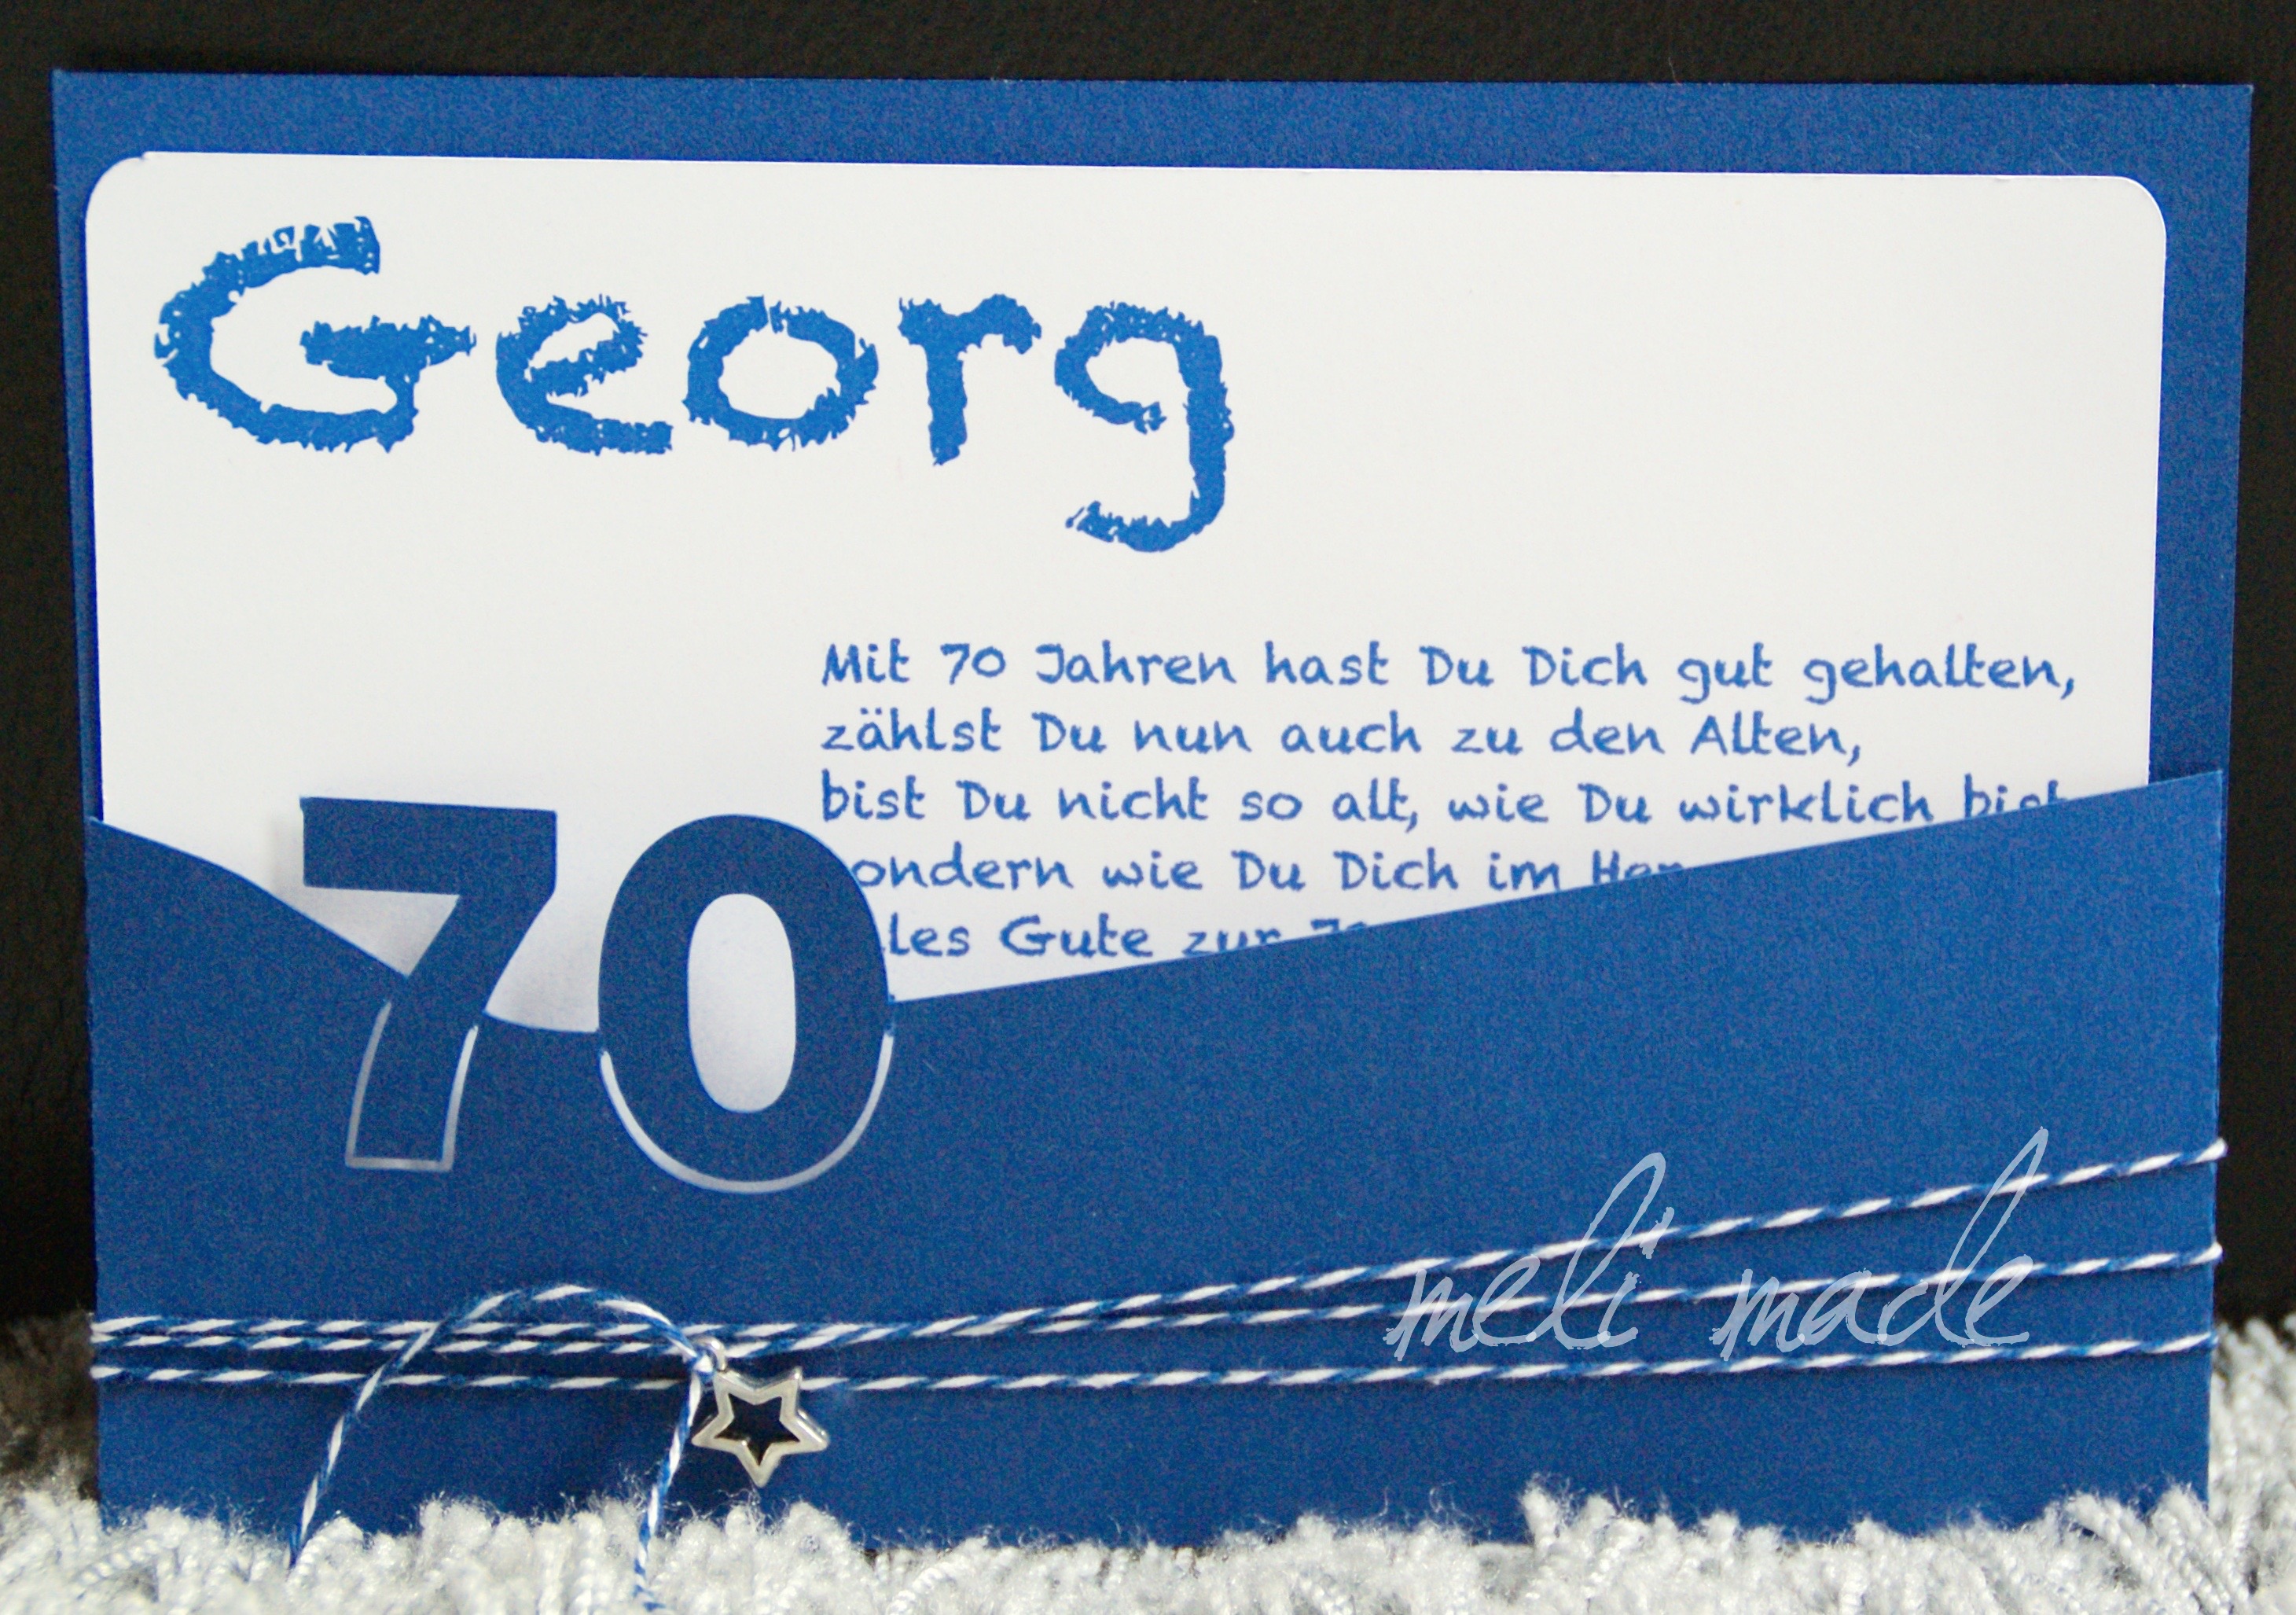 Georg
Mit 70 Jahren hast Du Dich gut gehalten,
zählst Du nun auch zu den Alten,
bist Du nicht so alt, wie Du wirklich bist
wie Du Dich im
Gute zur
70
meli made